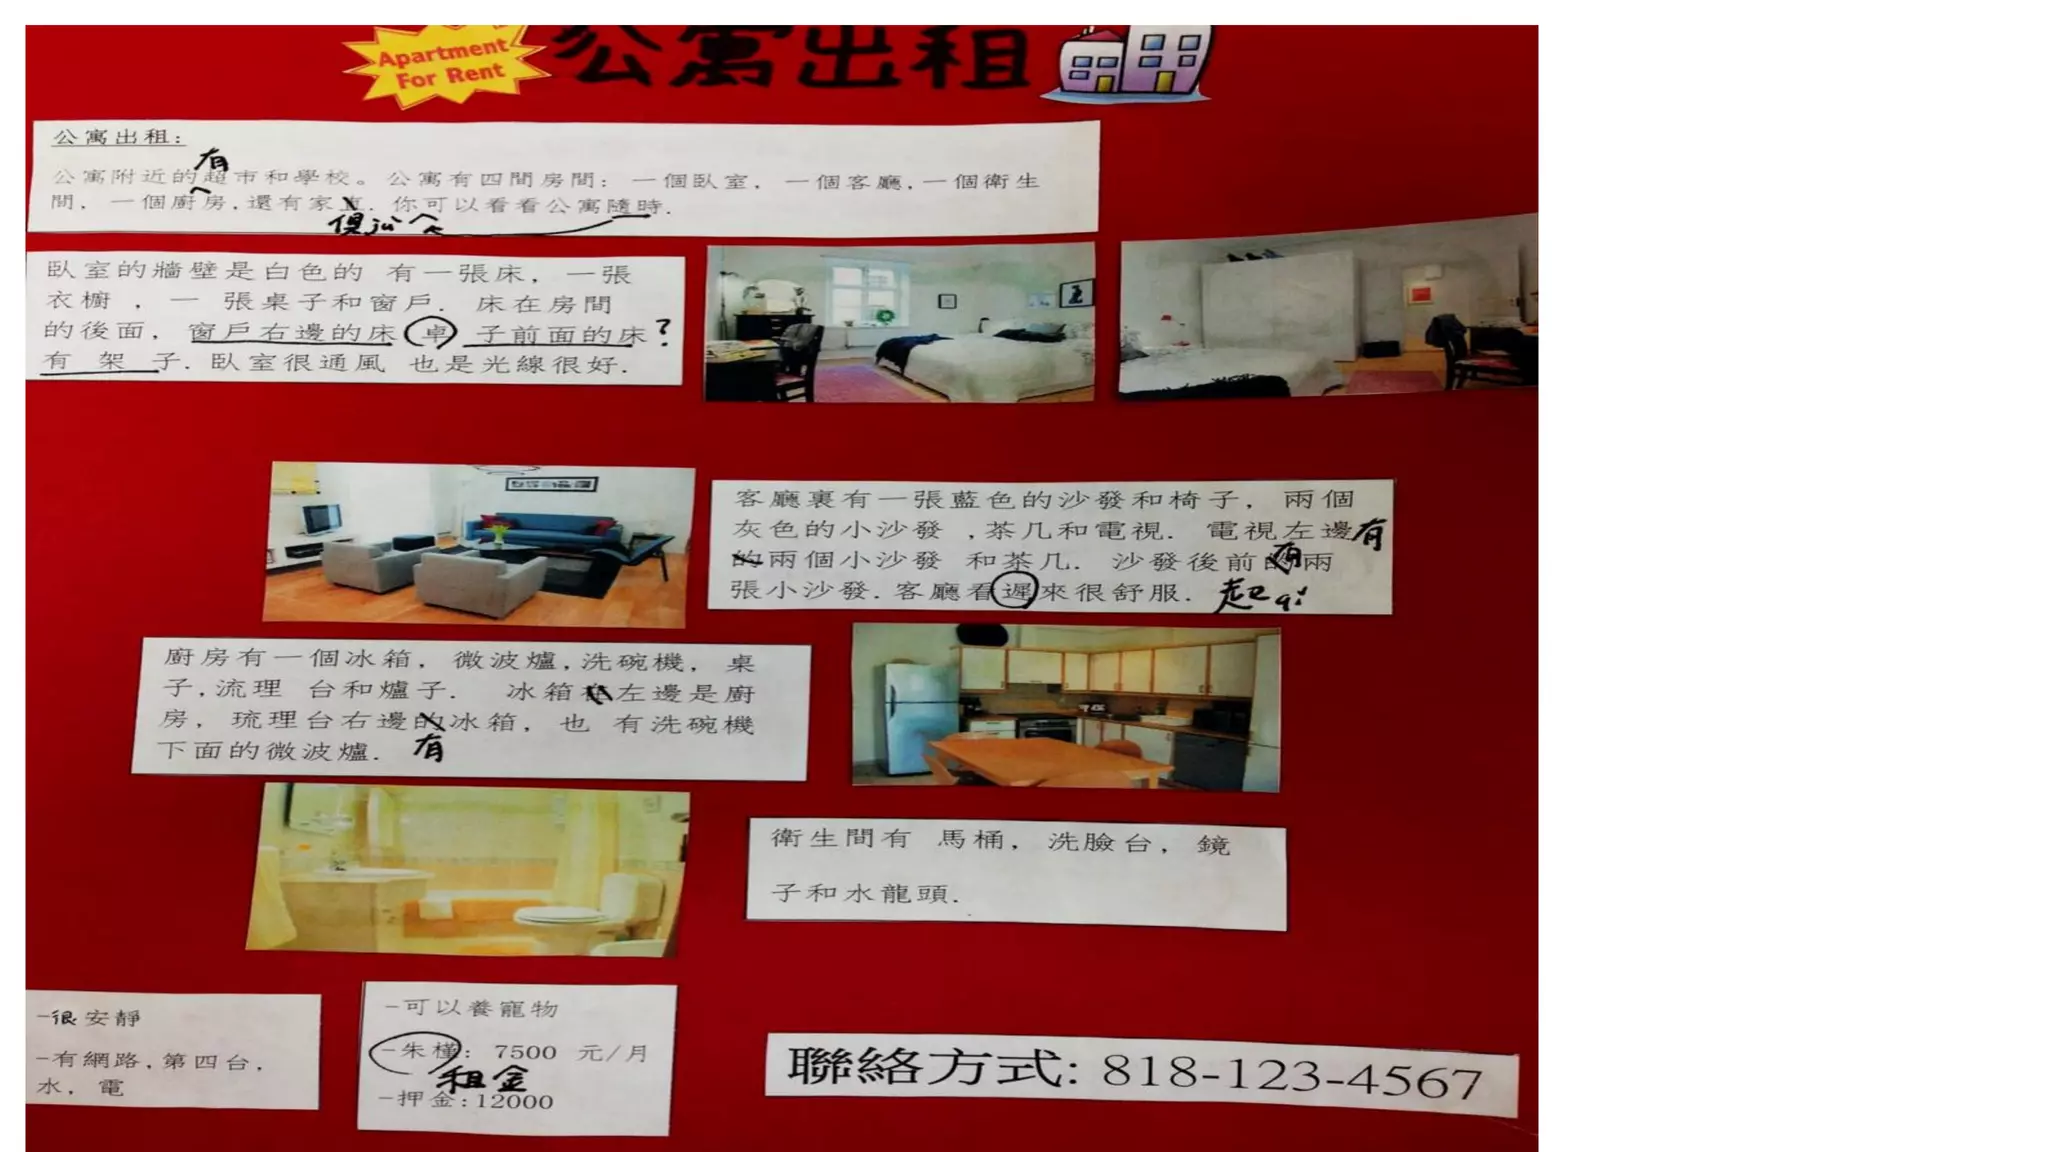 Apartment
For Rent
公寓出租
公寓出租:
有
公寓附近的超市和學校。公寓有四間房間: 一個臥室, 一個客廳,一個衛生
間, 一個廚房,還有家直. 你可以看看公寓隨時.
俱jù
臥室的牆壁是白色的 有一張床, 一張
衣櫥 , 一 張桌子和窗戶. 床在房間
的後面, 窗戶右邊的床 卓 子前面的床?
有 架 子. 臥室很通風 也是光線很好.
客廳裏有一張藍色的沙發和椅子, 兩個
灰色的小沙發 ,茶几和電視. 電視左邊有
的兩個小沙發 和茶几. 沙發後前的有兩
張小沙發.客廳看遲來很舒服. 起qǐ
廚房有一個冰箱, 微波爐,洗碗機, 桌
子,流理 台和爐子. 冰箱在左邊是廚
房, 琉理台右邊的冰箱, 也 有洗碗機
下面的微波爐. 有
衛生間有 馬桶, 洗臉台, 鏡
子和水龍頭.
-很安靜
-有網路,第四台,
水, 電
-可以養寵物
-朱槿: 7500 元/月
租金
-押金:12000
聯絡方式: 818-123-4567